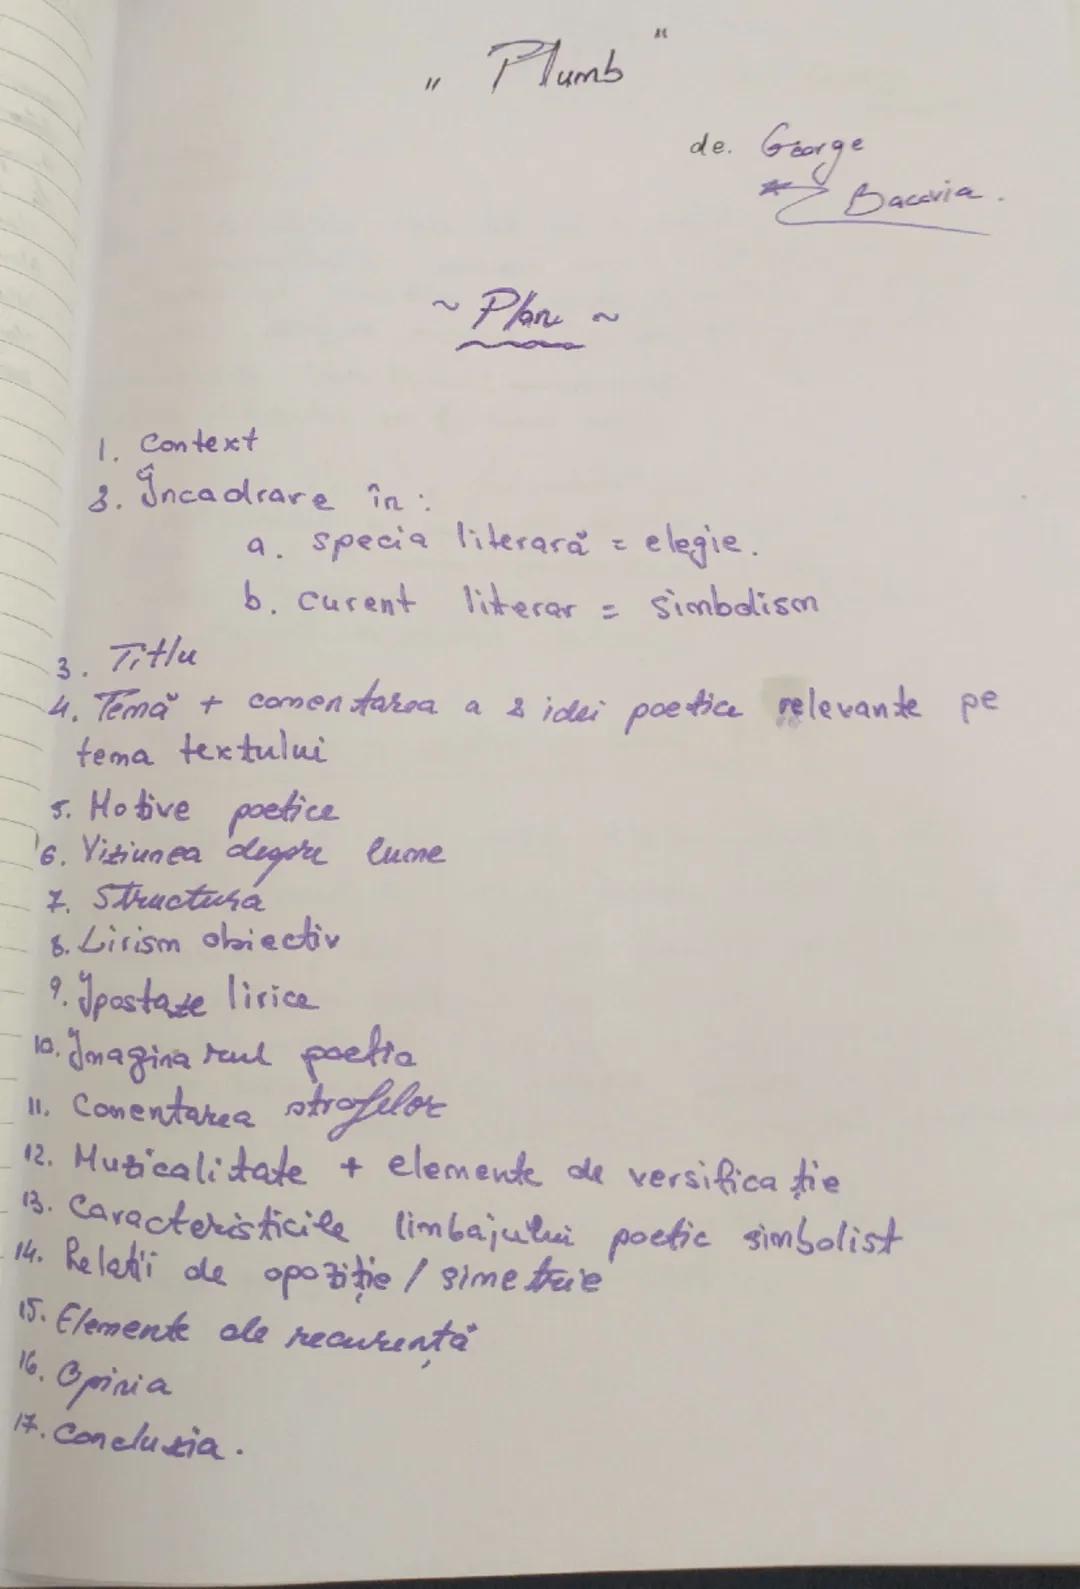 „ Plumb "
de. George
Bacovia.
~ Plan ~
1. Context
2. Încadrare în :
a. specia literară = elegie.
b. curent literar = simbolism
3. Titlu
4. Temă + comentarea a 2 idei poetice relevante pe
tema textului
5. Motive poetice
6. Viziunea despre lume
7. Structura
8. Lirism obiectiv
9. Ipostaze lirice
10. Imaginarul poetic
11. Comentarea strofelor
12. Muzicalitate + elemente de versificație
13. Caracteristicile limbajului poetic simbolist
14. Relații de opoziție / simetrie
15. Elemente de recurență
16. Opinia
17. Concluzia.